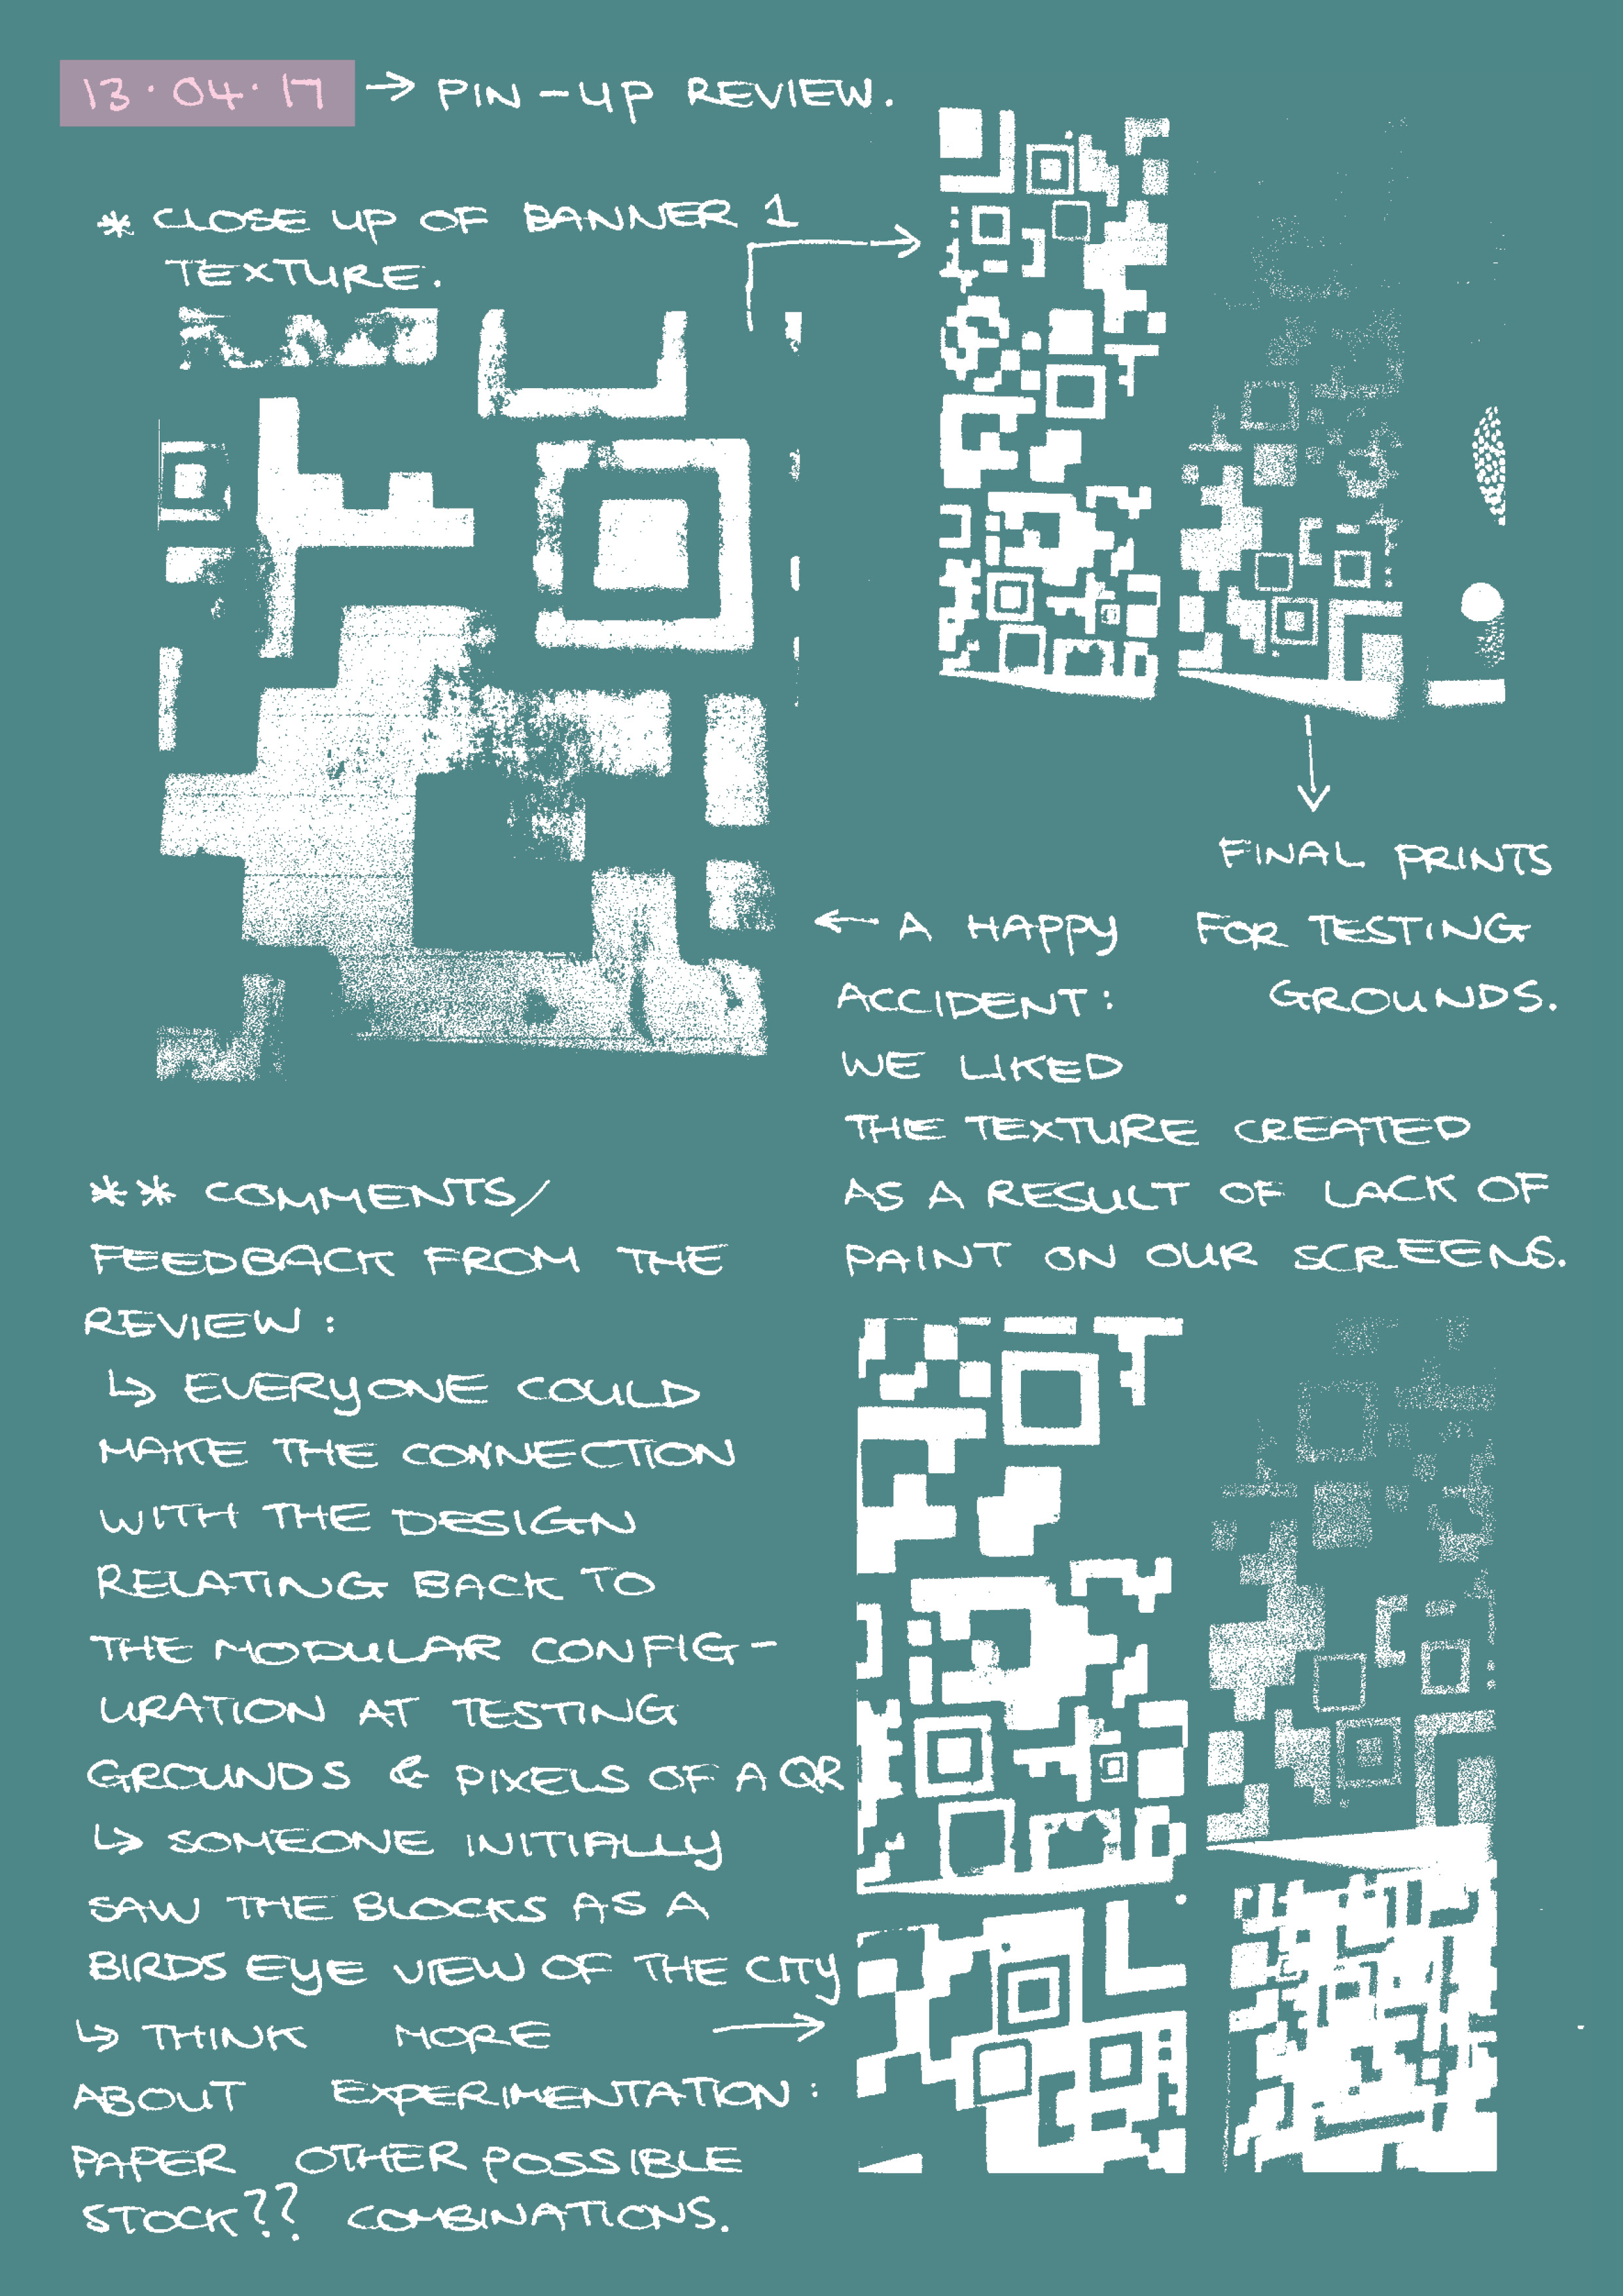 13·04·17 → PIN-UP REVIEW.
* CLOSE UP OF BANNER 1
TEXTURE.
FINAL PRINTS
FOR TESTING
GROUNDS.
← A HAPPY
ACCIDENT:
WE LIKED
THE TEXTURE CREATED
AS A RESULT OF LACK OF
PAINT ON OUR SCREENS.
** COMMENTS/
FEEDBACK FROM THE
REVIEW:
↳ EVERYONE COULD
MAKE THE CONNECTION
WITH THE DESIGN
RELATING BACK TO
THE MODULAR CONFIG-
URATION AT TESTING
GROUNDS & PIXELS OF A QR
↳ SOMEONE INITIALLY
SAW THE BLOCKS AS A
BIRDS EYE VIEW OF THE CITY
↳ THINK MORE →
ABOUT EXPERIMENTATION:
PAPER OTHER POSSIBLE
STOCK?? COMBINATIONS.